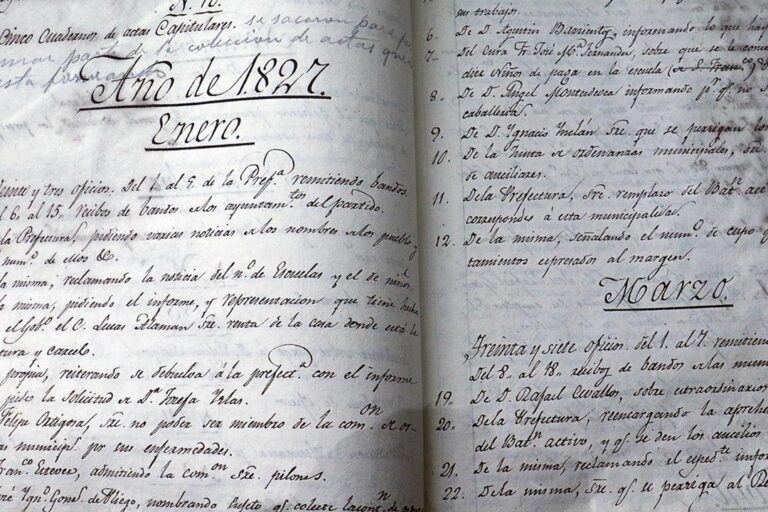 N. 10.
Cinco Cuadernos de actas Capitulares. se sacaron para
parte de la coleccion de actas que
Año de 1827.
Enero.
y tres oficios. Del 1. al 5. de la Prefª. remitiendo bandos.
6. al 15. recibos de bandos a los ayuntamtos del partido.
la Prefectura, pidiendo varias noticias a los nombres a los pueblos
numº. de ellos &c.
la misma, reclamando la noticia del nº. de Escuelas y el de niños.
la misma, pidiendo el informe, y representacion que tiene
el Gobº. el C. Lucas Alaman Sre. renta de la casa donde está la
tura y carcel.
propia, reiterando se debuelva á la prefectª. con el informe
pide la solicitud de Dª. Josefa Yslas.
Felipe Ortigosa, Sre. no poder ser miembro de la comon. de or-
municips. por sus enfermedades.
Franco. Estevez, admitiendo la comon. Sre. pilones.
Ygnº. Gonz. de Pliego, nombrando sujeto qe. colecte
sus trabajo.
6. De D. Agustin Barrientos, informando lo que hay
7. Del Cura Fr. José Mª. Fernandez, sobre que se le
diez Niños de paga en la escuela (de S. Franco.)
8. De D. Angel Montedeoca informando pr. qe. no
caballeriza.
9. De D. Ygnacio Inclán Sre. que se persigan los
10. De la Junta de ordenanzas municipales, sre.
de auxiliares.
11. De la Prefectura, Sre. remplazo del Batn.
corresponde á esta municipalidad.
12. De la misma, señalando el numº. de cupo
tamientos expresados al margen.
Marzo.
Treinta y siete oficios. del 1. al 7. remitiendo
Del 8. al 18. recibos de bandos a las
19. De D. Rafael Cevallos, sobre extraordinarios
20. De la Prefectura, reencargando la
del Batn. activo, y qe. se den los auxilios
21. De la misma, reclamando el expedte.
22. De la misma, Sre. qe. se persiga al